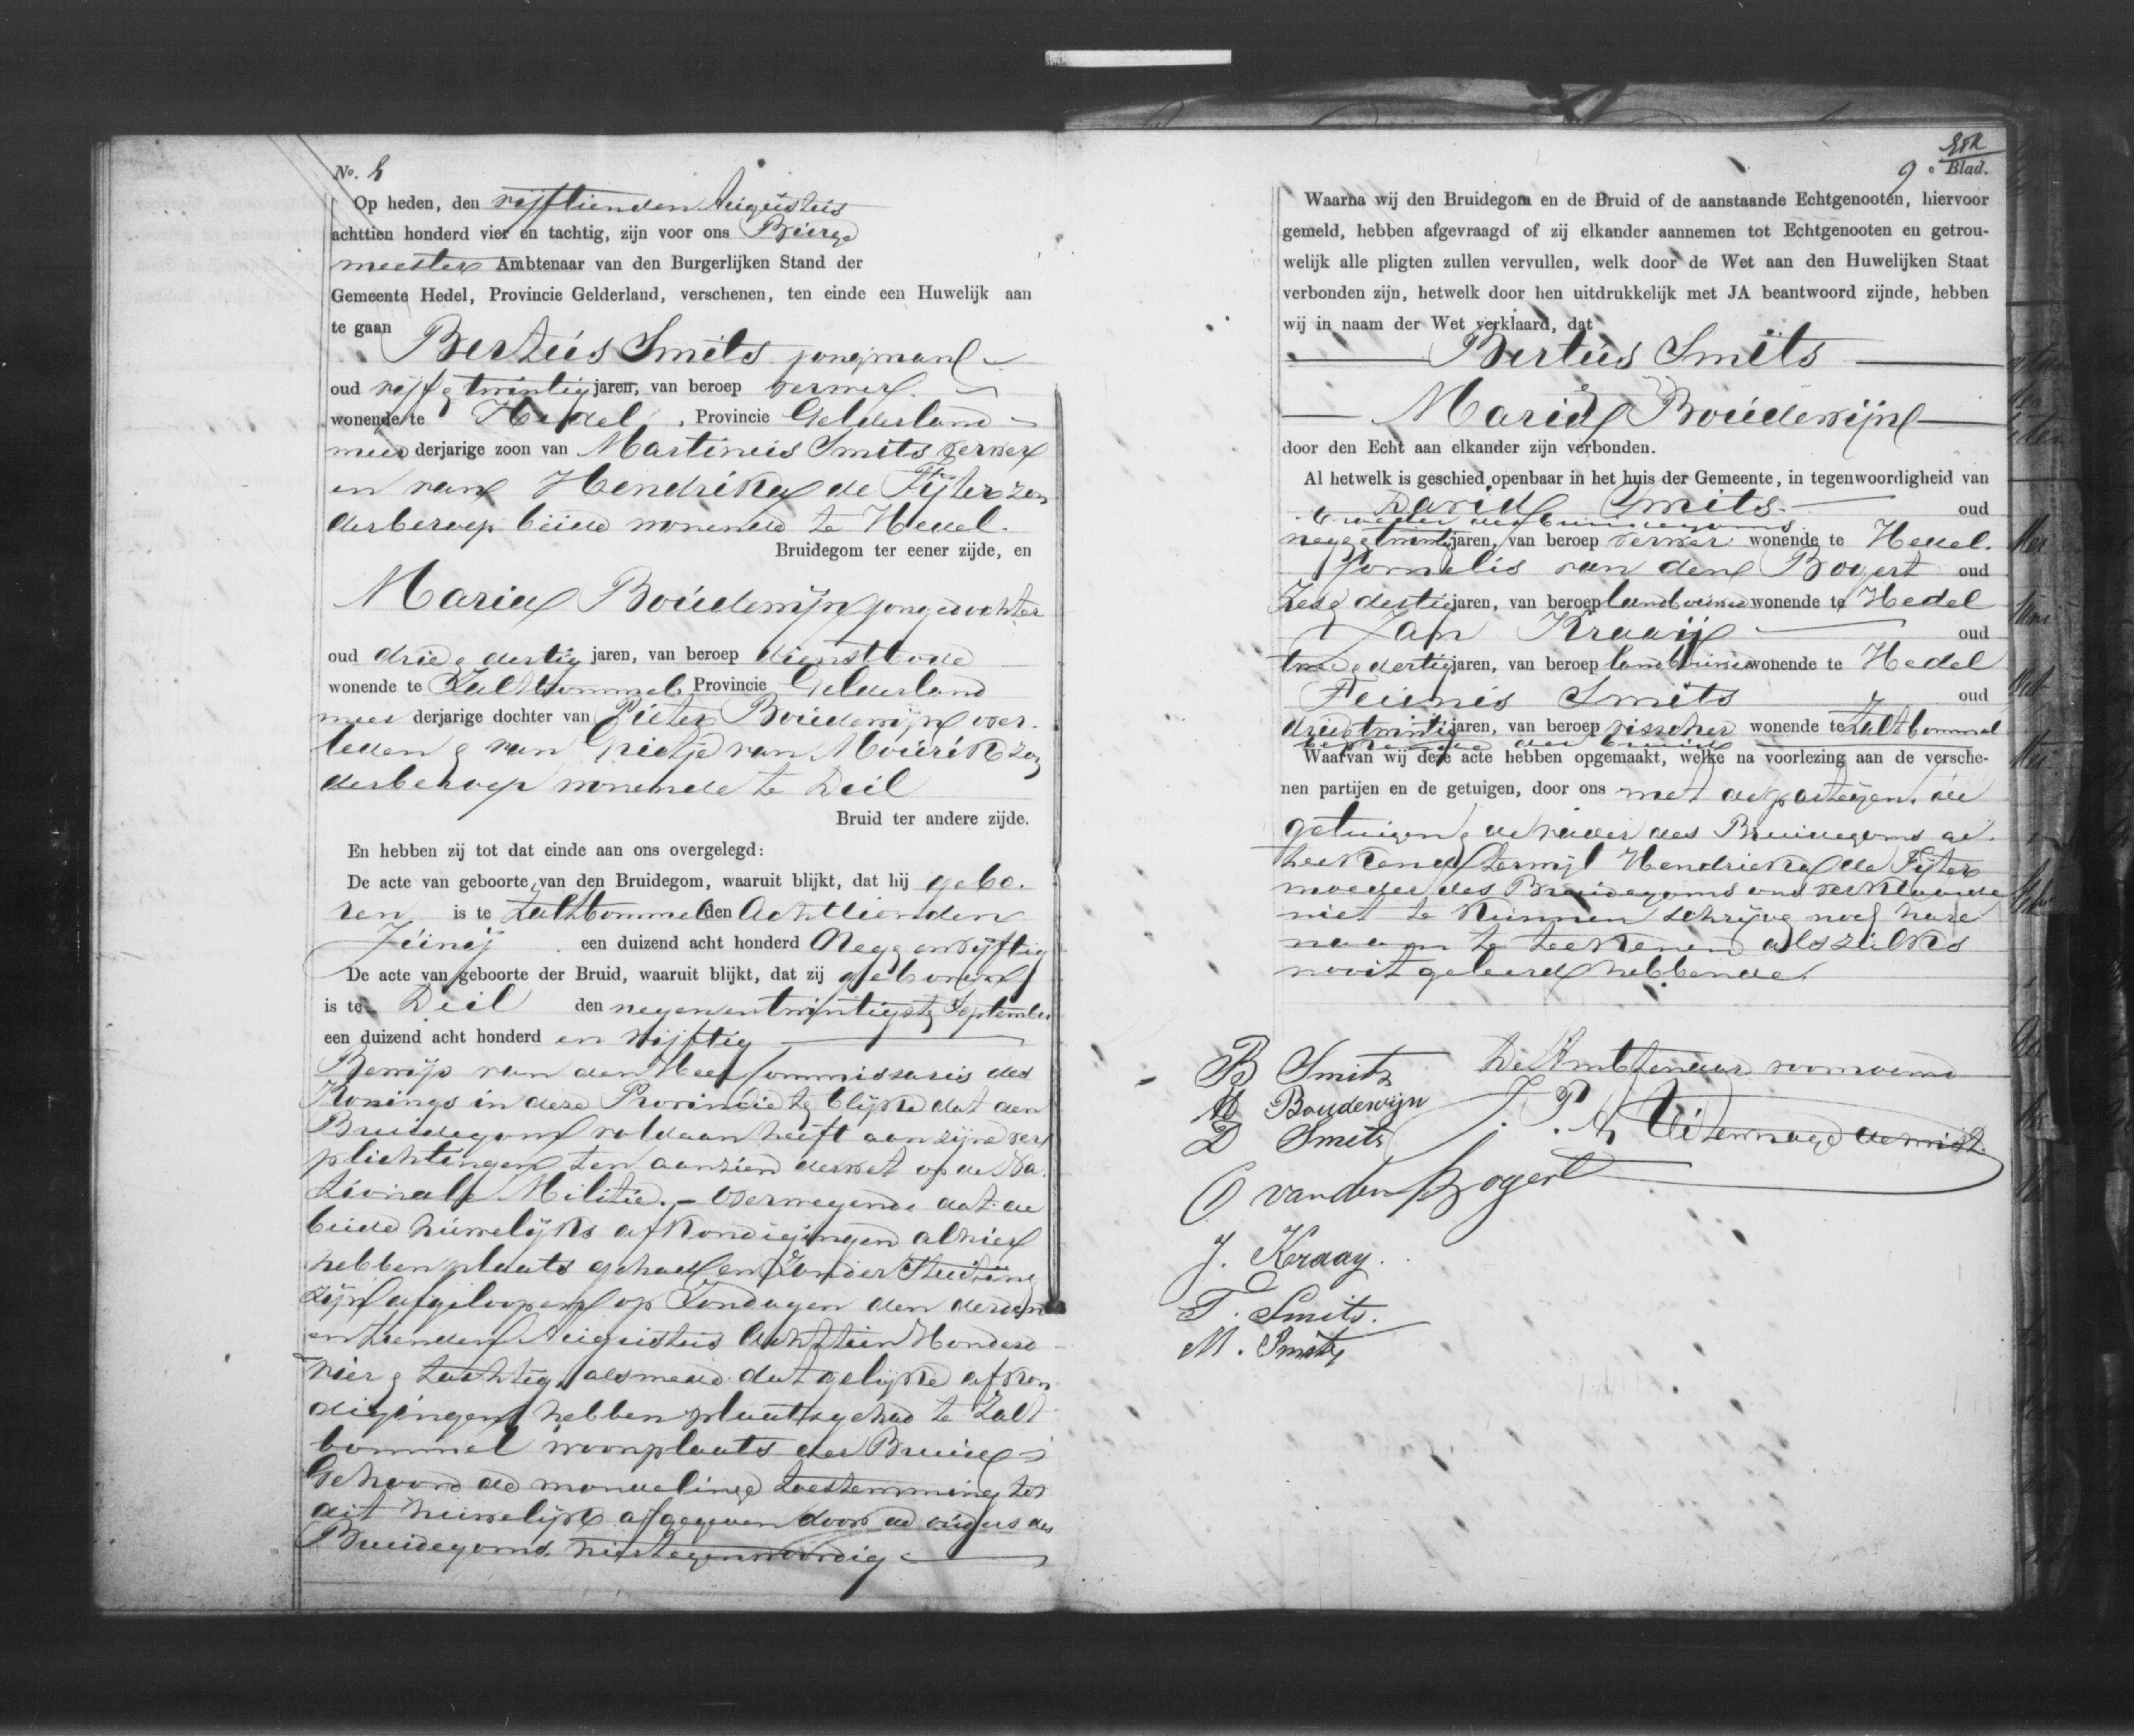 No. 8
Op heden, den vijftienden Augustus
achttien honderd vier en tachtig, zijn voor ons Burge
meester Ambtenaar van den Burgerlijken Stand der
Gemeente Hedel, Provincie Gelderland, verschenen, ten einde een Huwelijk aan
te gaan
Bertus Smits jongman
oud vijf & twintig jaren, van beroep verwer
wonende te Hedel, Provincie Gelderland
meerderjarige zoon van Martinus Smits verwer
en van Hendrika de Fijter zon
derberoep beide wonende te Hedel.
Bruidegom ter eener zijde, en
Maria Boudewijn jongedochter
oud drie & dertig jaren, van beroep dienstbode
wonende te Zaltbommel Provincie Gelderland
meer derjarige dochter van Pieter Boudewijn over
leden & van Pietje van Mourik zon
derberoep wonende te Deil
Bruid ter andere zijde.
En hebben zij tot dat einde aan ons overgelegd:
De acte van geboorte van den Bruidegom, waaruit blijkt, dat hij gebo
ren is te Zaltbommel den Achttienden
Junij een duizend acht honderd Neg en vijftig
De acte van geboorte der Bruid, waaruit blijkt, dat zij geboren
is te Deil den negenentwintigste September
een duizend acht honderd en vijftig
Bewijs van den Heer Commissaris des
Konings in deze Provincie te blijke dat den
Bruidegom voldaan heeft aan zijne ver
plichtingen ten aanzien der wet op de Na
tionale Militie. - Overwegende dat de
beide huwelijks afkondigingen alhier
hebben plaats gehad en zonder Stuiting
zijn afgeloopen op Zondagen den derden
en tienden Augustus Achttien Honderd
vier & tachtig, alsmede dat gelijke afkon
digingen hebben plaatsgehad te Zalt
bommel woonplaats der Bruid
Gehoord de mondelinge toestemming tot
dit huwelijk afgegeven door de ouders des
Bruidegoms hier tegenwoordig
9e Blad.
Waarna wij den Bruidegom en de Bruid of de aanstaande Echtgenooten, hiervoor
gemeld, hebben afgevraagd of zij elkander aannemen tot Echtgenooten en getrou-
welijk alle pligten zullen vervullen, welk door de Wet aan den Huwelijken Staat
verbonden zijn, hetwelk door hen uitdrukkelijk met JA beantwoord zijnde, hebben
wij in naam der Wet verklaard, dat
Bertus Smits
Maria Boudewijn
door den Echt aan elkander zijn verbonden.
Al hetwelk is geschied openbaar in het huis der Gemeente, in tegenwoordigheid van
David Smits oud
broeder des bruidegoms
neg & twintig jaren, van beroep verwer wonende te Hedel.
Cornelis van den Bogert oud
Zes & dertig jaren, van beroep landbouwer wonende te Hedel
Jan Kraaij oud
twee & dertig jaren, van beroep landbouwer wonende te Hedel
Teunis Smits oud
drie & twintig jaren, van beroep visscher wonende te Zaltbommel
der bruid
Waarvan wij deze acte hebben opgemaakt, welke na voorlezing aan de versche-
nen partijen en de getuigen, door ons met de partijen, de
getuigen & de vader des Bruidegoms ge
teekend terwijl Hendrieka de Fijter
moeder des Bruidegoms ons verklaarde
niet te kunnen schrijve noch hare
naam te teekenen als zulks
nooit geleerd hebbende.
B Smits
De Ambtenaar voornoemd
M Boudewijn
D Smits
C van den Bogert
J. Kraay.
T. Smits.
M. Smits